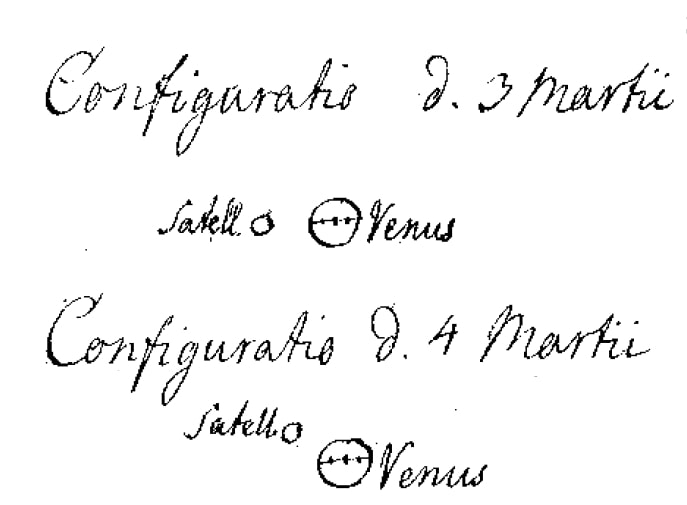 Configuratio d. 3 Martii
Satell. Venus
Configuratio d. 4 Martii
Satell.
Venus